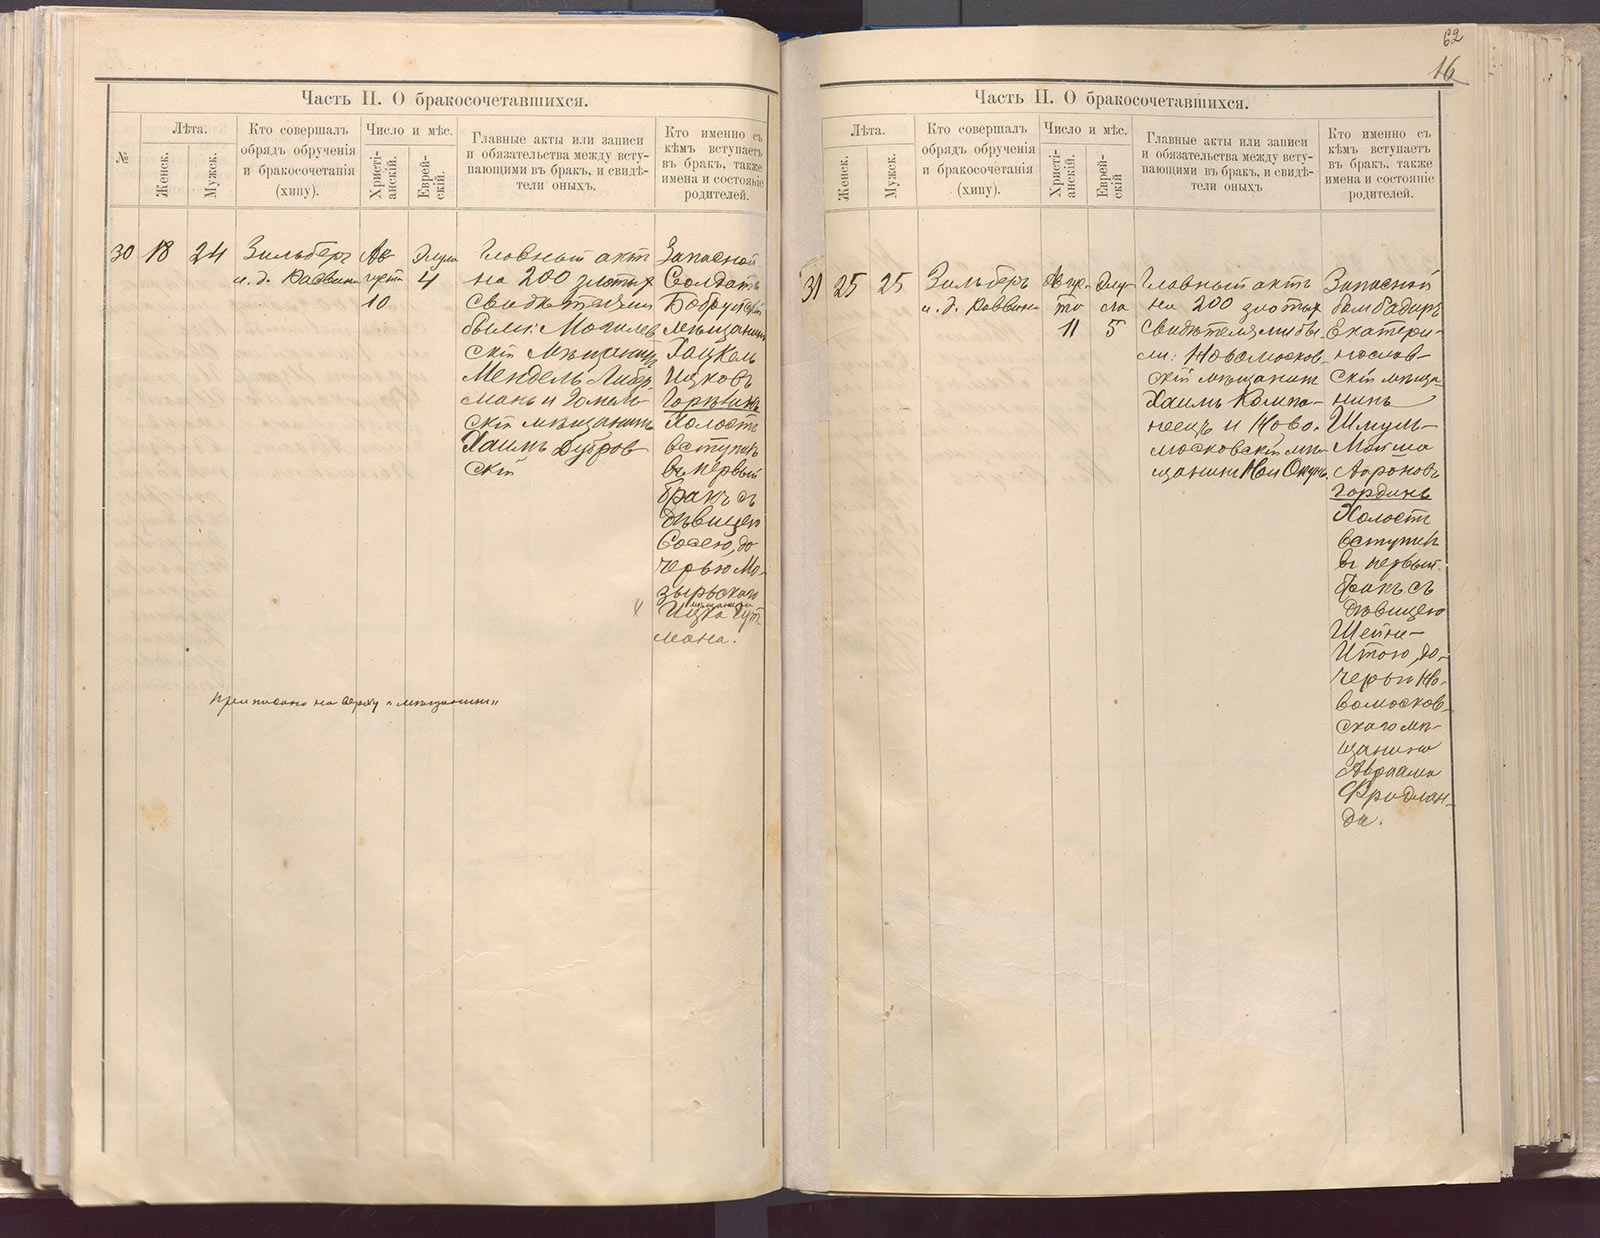 Часть II. О бракосочетавшихся.
№
Лѣта.
Женск.
Мужск.
Кто совершалъ
обрядъ обрученія
и бракосочетанія
(хипу).
Число и мѣс.
Христі-
анскій.
Еврей-
скій.
Главные акты или записи
и обязательства между всту-
пающими въ бракъ, и свидѣ-
тели оныхъ.
Кто именно съ
кѣмъ вступаетъ
въ бракъ, также
имена и состояніе
родителей.
30
18
24
Зильберъ
и. д. Раввина
Ав
густа
10
Элула
4
Главный актъ
на 200 злотых
свидѣтелями
были: Могилев
скій мѣщанинъ
Мендель Либер
манъ и Гомель
скій мѣщанинъ
Хаимъ Дубров
скій
Запасной
Солдатъ
Бобруйскій
мѣщанинъ
Хацкель
Ицковъ
Гореликъ
Холостъ
вступилъ
въ первый
бракъ съ
дѣвицею
Сосею, до
черью Мо-
зырьскаго
мѣщанина
Ицка Гут
мана.
Приписано на верху „мѣщанина"
62
16
Часть II. О бракосочетавшихся.
Лѣта.
Женск.
Мужск.
Кто совершалъ
обрядъ обрученія
и бракосочетанія
(хипу).
Число и мѣс.
Христі-
анскій.
Еврей-
скій
Главные акты или записи
и обязательства между всту-
пающими въ бракъ, и свидѣ-
тели оныхъ
Кто именно съ
кѣмъ вступаетъ
въ бракъ, также
имена и состояніе
родителей.
31
25
25
Зильберъ
и. д. Раввина
Авгус-
та
11
Элу-
ла
5
Главный актъ
на 200 злотых
свидѣтелями бы-
ли: Новомосков-
скій мѣщанинъ
Хаимъ Компа-
неецъ и Ново-
московскій мѣ-
щанинъ Окунь.
Запасной
бомбадиръ
Екатери-
нослав-
скій мѣща-
нинъ
Шмуль-
Мойша
Ароновъ
Гординъ
Холостъ
вступилъ
въ первый
бракъ съ
дѣвицею
Шейне-
Итою, до-
черью Но-
вомосков-
скаго мѣ-
щанина
Авраама
Фридлан-
да.